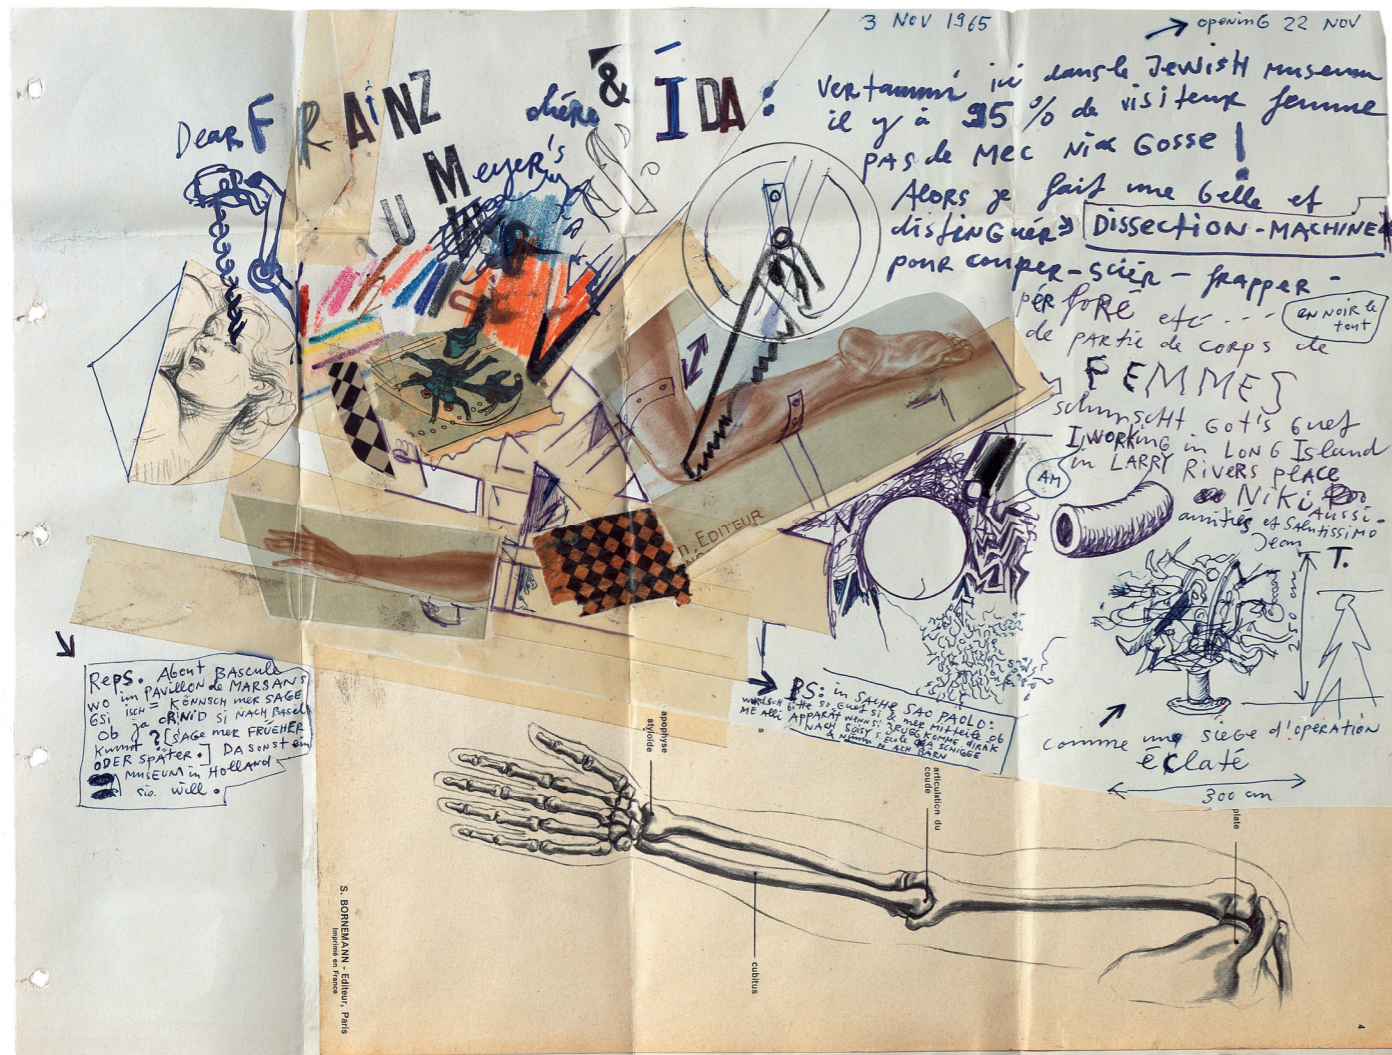 3 NOV 1965
opening 22 NOV
Dear FRAINZ
chère & ÏDA :
UM Meyer's
vertammi ici dans le Jewish museum
il y à 95 % de visiteur femme
PAS de MEC Ni Gosse !
Alors je fait une belle et
distinguér DISSECTION-MACHINE
pour couper-scièr - frapper -
pérforé etc - - - -
EN NOIR le
tout
de PARTIE de CORPS de
FEMMES
schunscht Got's guet
I WORKING in LONG Island
AM
in LARRY Rivers place
NiKi Aussi.
amitiés et Salutissimo
Jean T.
250 cm
comme une siège d'opération
éclaté
300 cm
n. EDITEUR
Reps. About BASCULE
wo im PAVILLON de MARSANS
GSi isch = KÖNNSCH mer SAGE
ob ja ORNiD si NACH Basel
Kunnt ? [SAGE mer FRÜEHER
ODER SpäTER.] DA sonst ein
MUSEUM in HOLLAND
sie will.
PS: in SACHE SAO PAOLO:
würdsch bitte so Guet si & mer mitteile ob
ME Alli APPARÄT WENN Si ZRUGG KOMME diräk
NACH SOiSY S. Ecole SCHIGGE
& Nümm NACH BÄRN
apophyse
styloïde
articulation du
coude
plate
cubitus
S. BORNEMANN - Editeur, Paris
Imprimé en France
4